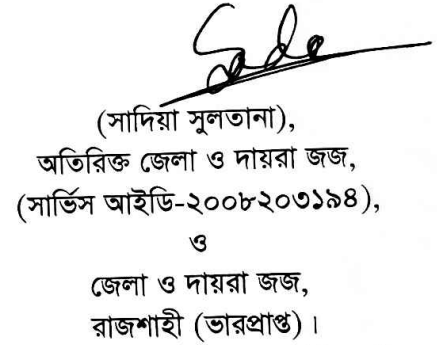 (সাদিয়া সুলতানা),
অতিরিক্ত জেলা ও দায়রা জজ,
(সার্ভিস আইডি-২০০৮২০৩১৯৪),
ও
জেলা ও দায়রা জজ,
রাজশাহী (ভারপ্রাপ্ত)।